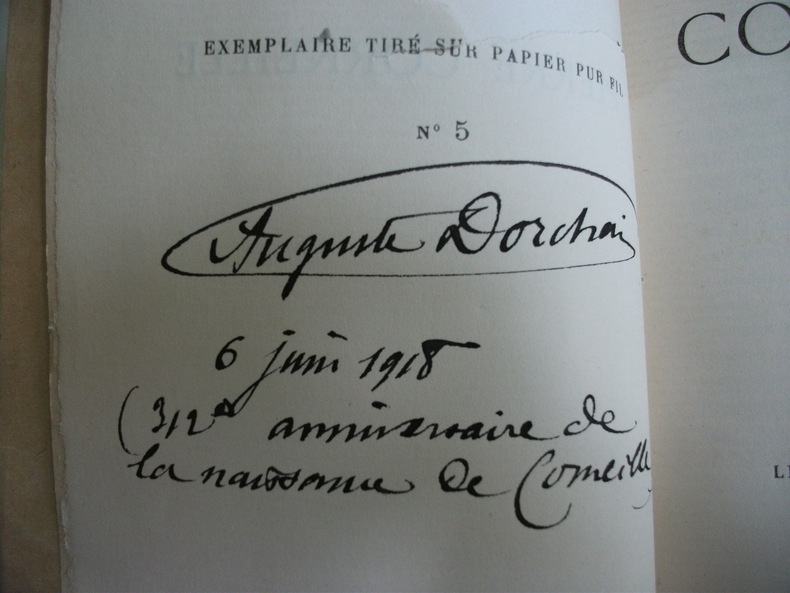 EXEMPLAIRE TIRÉ SUR PAPIER PUR FIL
N° 5
Auguste Dorchain
6 juin 1918
(312e anniversaire de
la naissance de Corneille)
CO